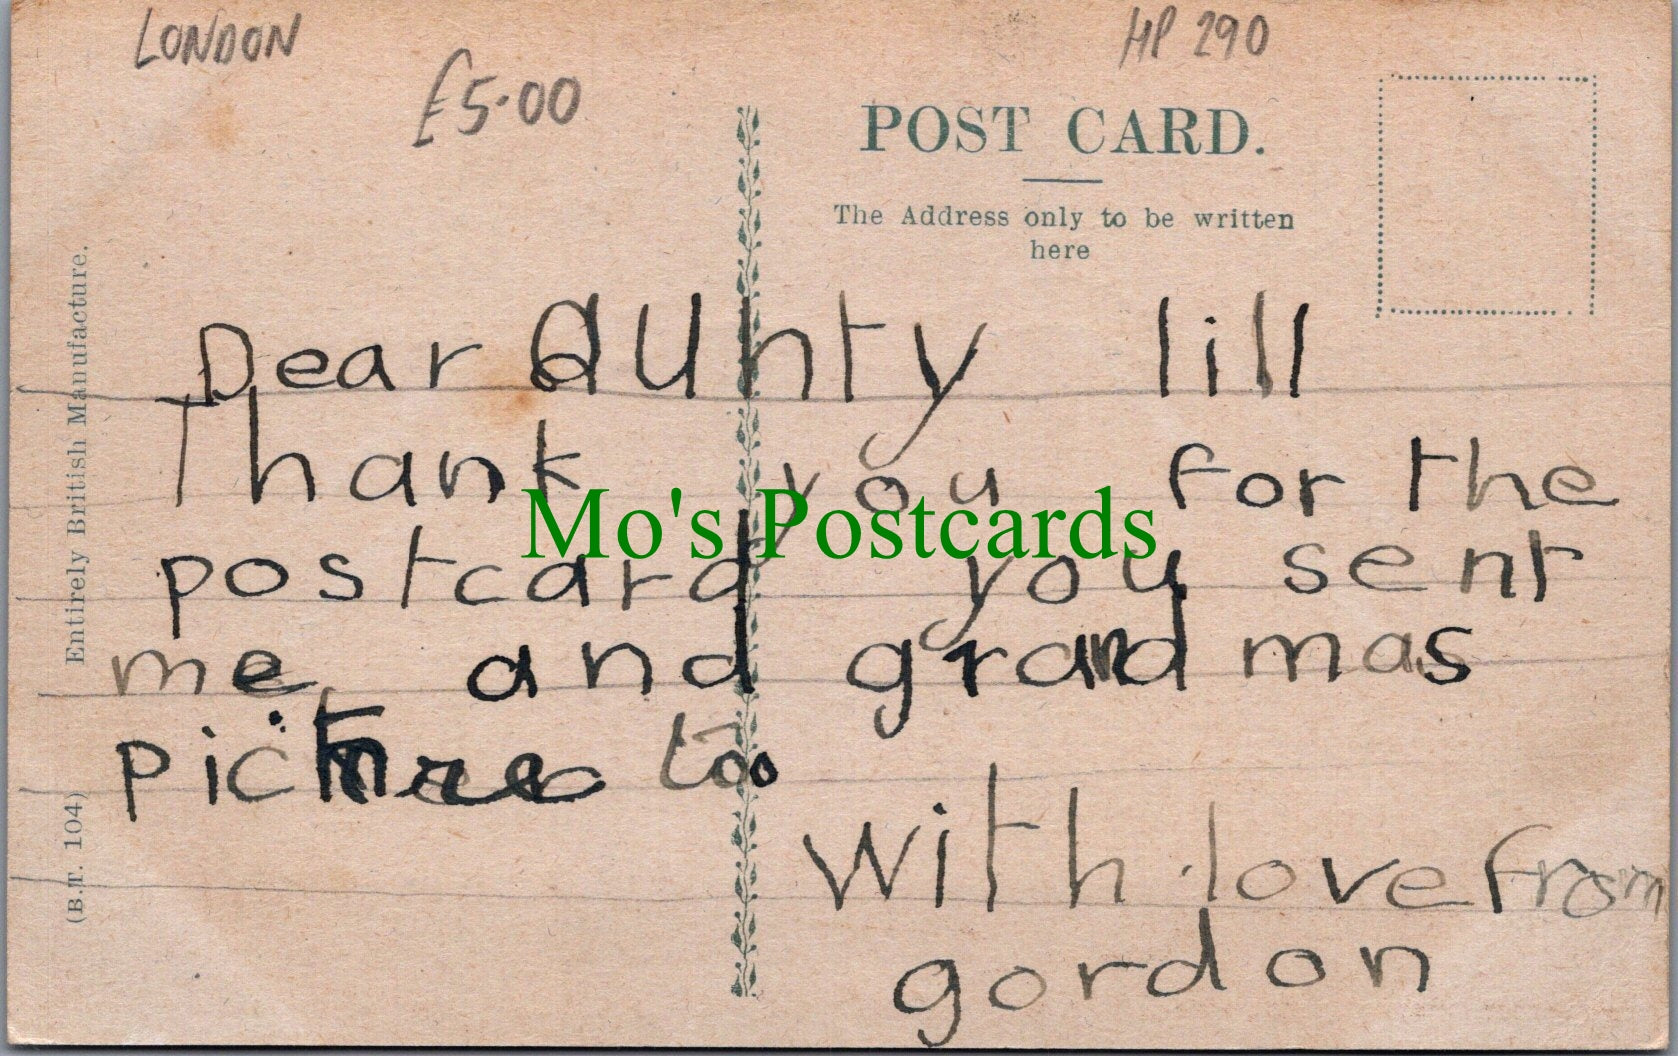 LONDON
£5.00
HP 290
POST CARD.
The Address only to be written
here
Dear aunty lill
Thank you for the
postcard you sent
me and grand mas
picture too
With love from
gordon
Entirely British Manufacture.
(B.T. 104)
Mo's Postcards